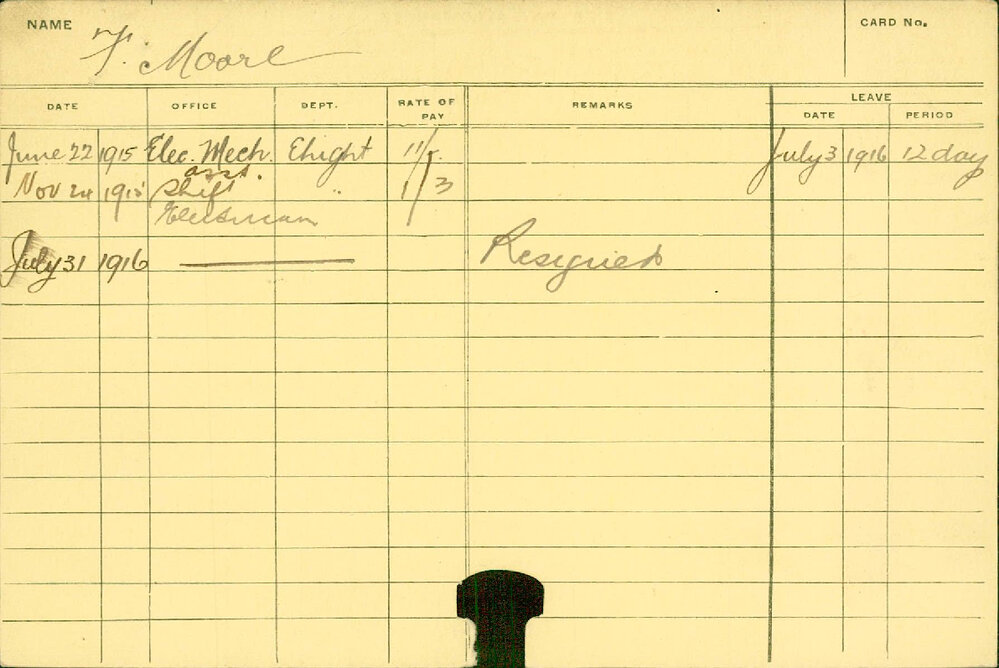 NAME F. Moore CARD No.
DATE OFFICE DEPT. RATE OF PAY REMARKS LEAVE
DATE PERIOD
June 22 1915 Elec. Mech. Elight 11/- July 3 1916 12 day
asst.
Nov 24 1915 Shift " 1/3
July 31 1916 Resigned